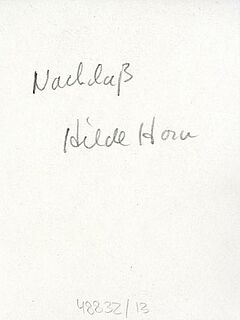 Nachlaß
Hilde Horn
48832/13